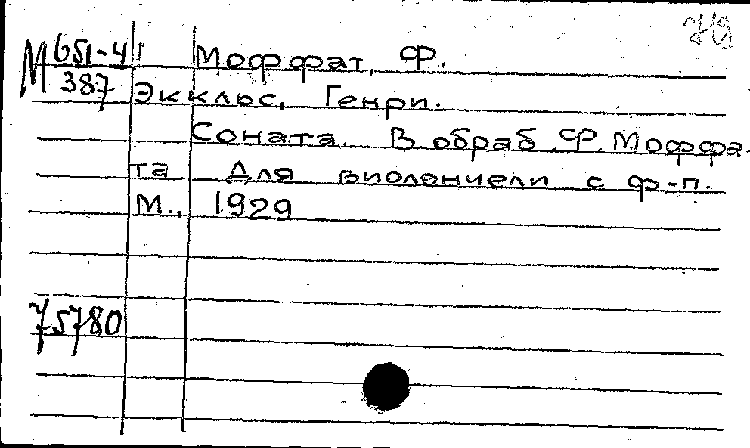 М 651-4
387
Моффат, Ф.
Экклюс, Генри.
Соната. В обраб. Ф. Моффа
та Для виолончели с ф-п.
М., 1929
75780